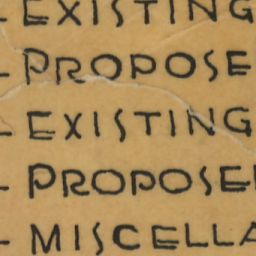 - EXISTING
- PROPOSE
- EXISTING
- PROPOSE
- MISCELLA